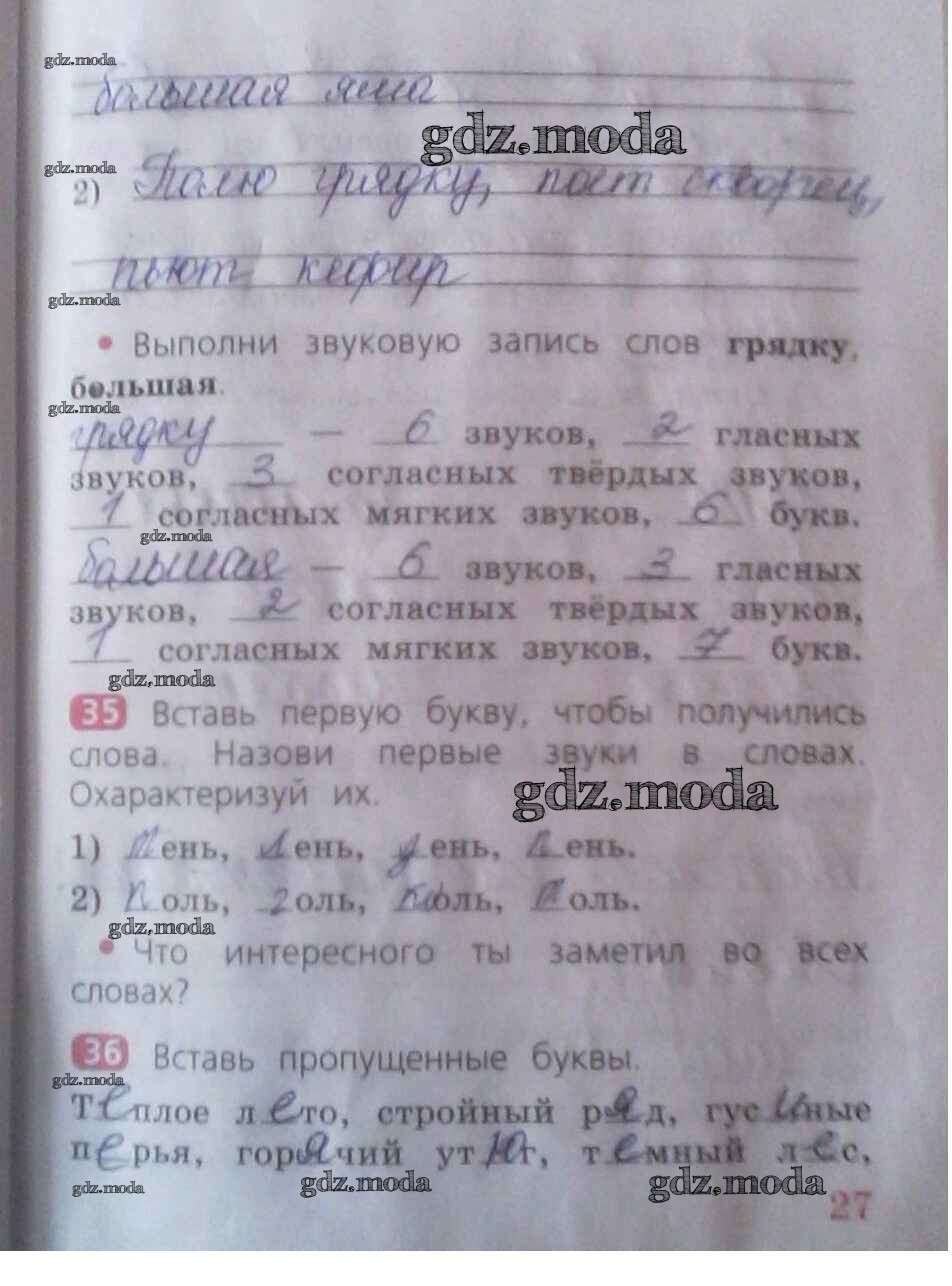 gdz.moda
большая яма
gdz.moda
gdz.moda
2) Полю грядку, поет скворец,
пьют кефир
gdz.moda
• Выполни звуковую запись слов грядку,
большая.
gdz.moda
грядку — 6 звуков, 2 гласных
звуков, 3 согласных твёрдых звуков,
1 согласных мягких звуков, 6 букв.
gdz.moda
большая — 6 звуков, 3 гласных
звуков, 2 согласных твёрдых звуков,
1 согласных мягких звуков, 7 букв.
gdz.moda
35 Вставь первую букву, чтобы получились
слова. Назови первые звуки в словах.
Охарактеризуй их.
gdz.moda
1) Пень, лень, день, ень.
2) Коль, голь, моль, оль.
gdz.moda
• Что интересного ты заметил во всех
словах?
36 Вставь пропущенные буквы.
gdz.moda
Теплое лето, стройный ряд, гусиные
перья, горячий утюг, темный лес,
gdz.moda gdz.moda gdz.moda
27